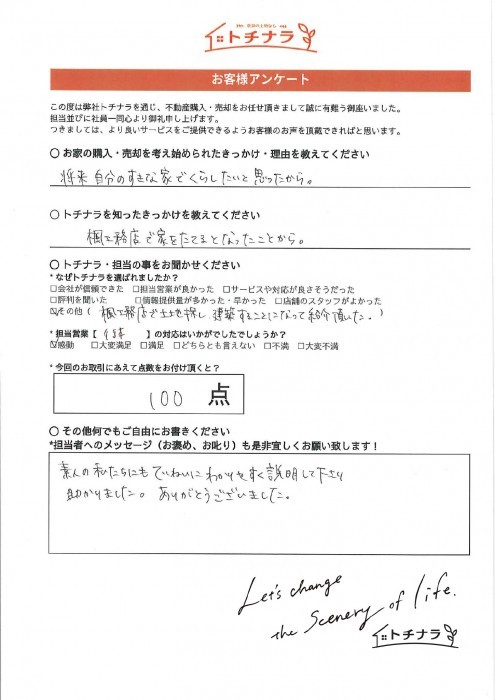 トチナラ
お客様アンケート
この度は弊社トチナラを通じ、不動産購入・売却をお任せ頂きまして誠に有難う御座いました。
担当並びに社員一同心より御礼申し上げます。
つきましては、より良いサービスをご提供できるようお客様のお声を頂戴できればと思います。
〇 お家の購入・売却を考え始められたきっかけ・理由を教えてください
将来自分のすきな家でくらしたいと思ったから。
〇 トチナラを知ったきっかけを教えてください
楓工務店で家をたてるとなったことから。
〇 トチナラ・担当の事をお聞かせください
* なぜトチナラを選ばれましたか?
□会社が信頼できた □担当営業が良かった □サービスや対応が良さそうだった
□評判を聞いた □情報提供量が多かった・早かった □店舗のスタッフがよかった
☑その他( 楓工務店で土地を探し、建築することになって紹介頂いた。)
* 担当営業【 】の対応はいかがでしたでしょうか?
☑感動 □大変満足 □満足 □どちらとも言えない □不満 □大変不満
* 今回のお取引にあえて点数をお付け頂くと?
100 点
〇 その他何でもご自由にお書きください
*担当者へのメッセージ(お褒め、お叱り)も是非宜しくお願い致します!
素人の私たちにもていねいにわかりやすく説明して下さり
助かりました。ありがとうございました。
Let's change
the Scenery of life.
トチナラ